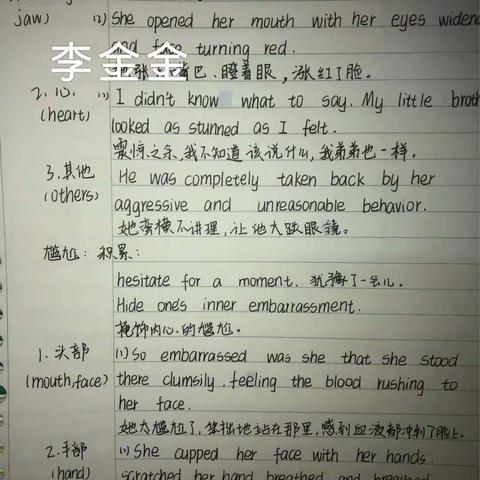 jaw) (2) She opened her mouth with her eyes widened
and face turning red.
李金金
她张大嘴巴、瞪着眼,涨红了脸。
2.心 (1) I didn't know what to say. My little broth
(heart) looked as stunned as I felt.
震惊之余,我不知道该说什么,我弟弟也一样。
3.其他 He was completely taken back by her
(others) aggressive and unreasonable behavior.
她蛮横不讲理,让他大跌眼镜。
尴尬:积累:
hesitate for a moment. 犹豫了一会儿。
Hide one's inner embarrassment.
掩饰内心的尴尬。
1.头部 (1) So embarrassed was she that she stood
(mouth,face) there clumsily, feeling the blood rushing to
her face.
她太尴尬了,笨拙地站在那里,感到血液都冲到了脸上。
2.手部 (1) She cupped her face with her hands.
(hand) scratched her hand, breathed and breathed